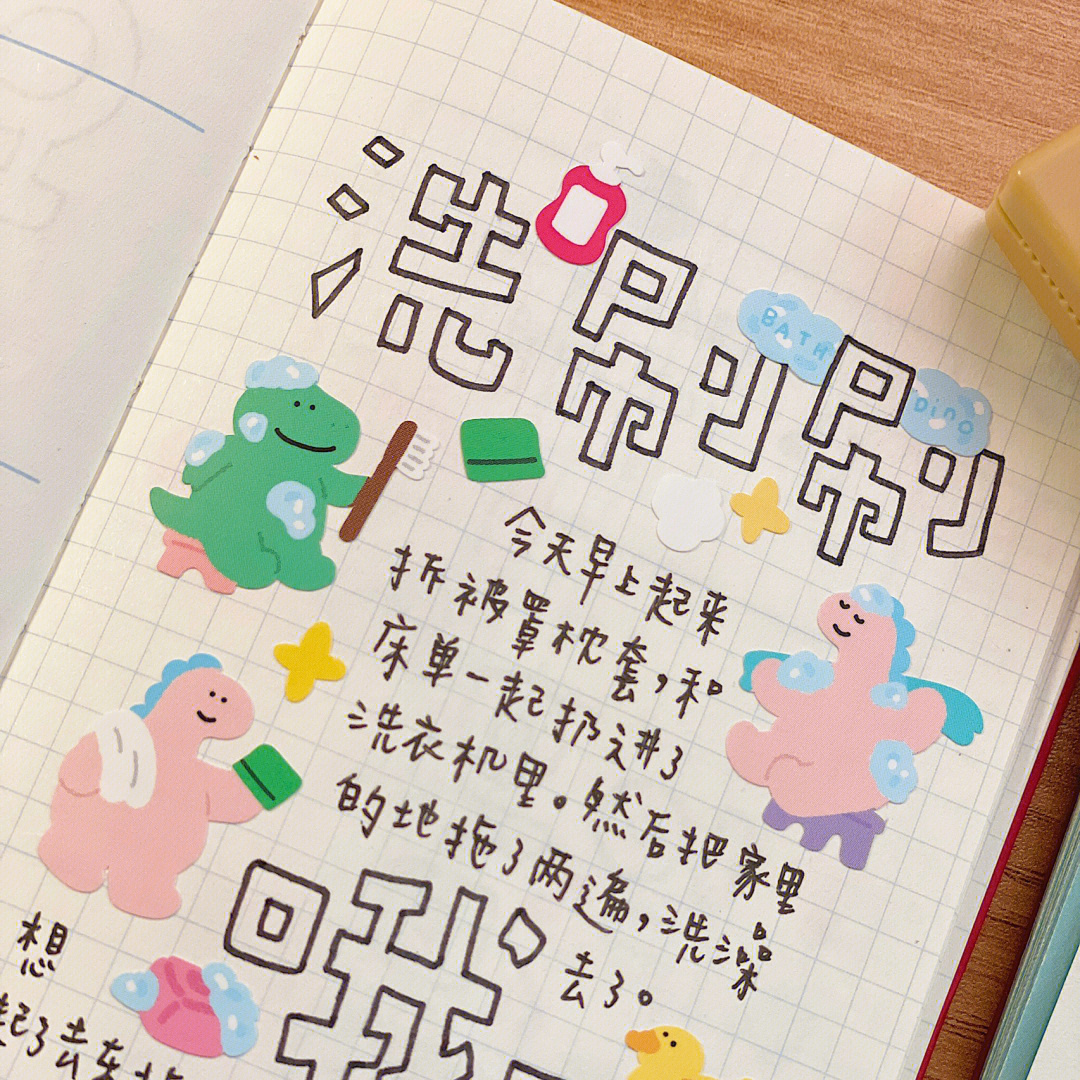 洗刷刷
BATH
Ding
今天早上起来
拆被罩枕套，和
床单一起扔进了
洗衣机里。然后把家里
的地拖了两遍，洗澡
去了。
想
起了去